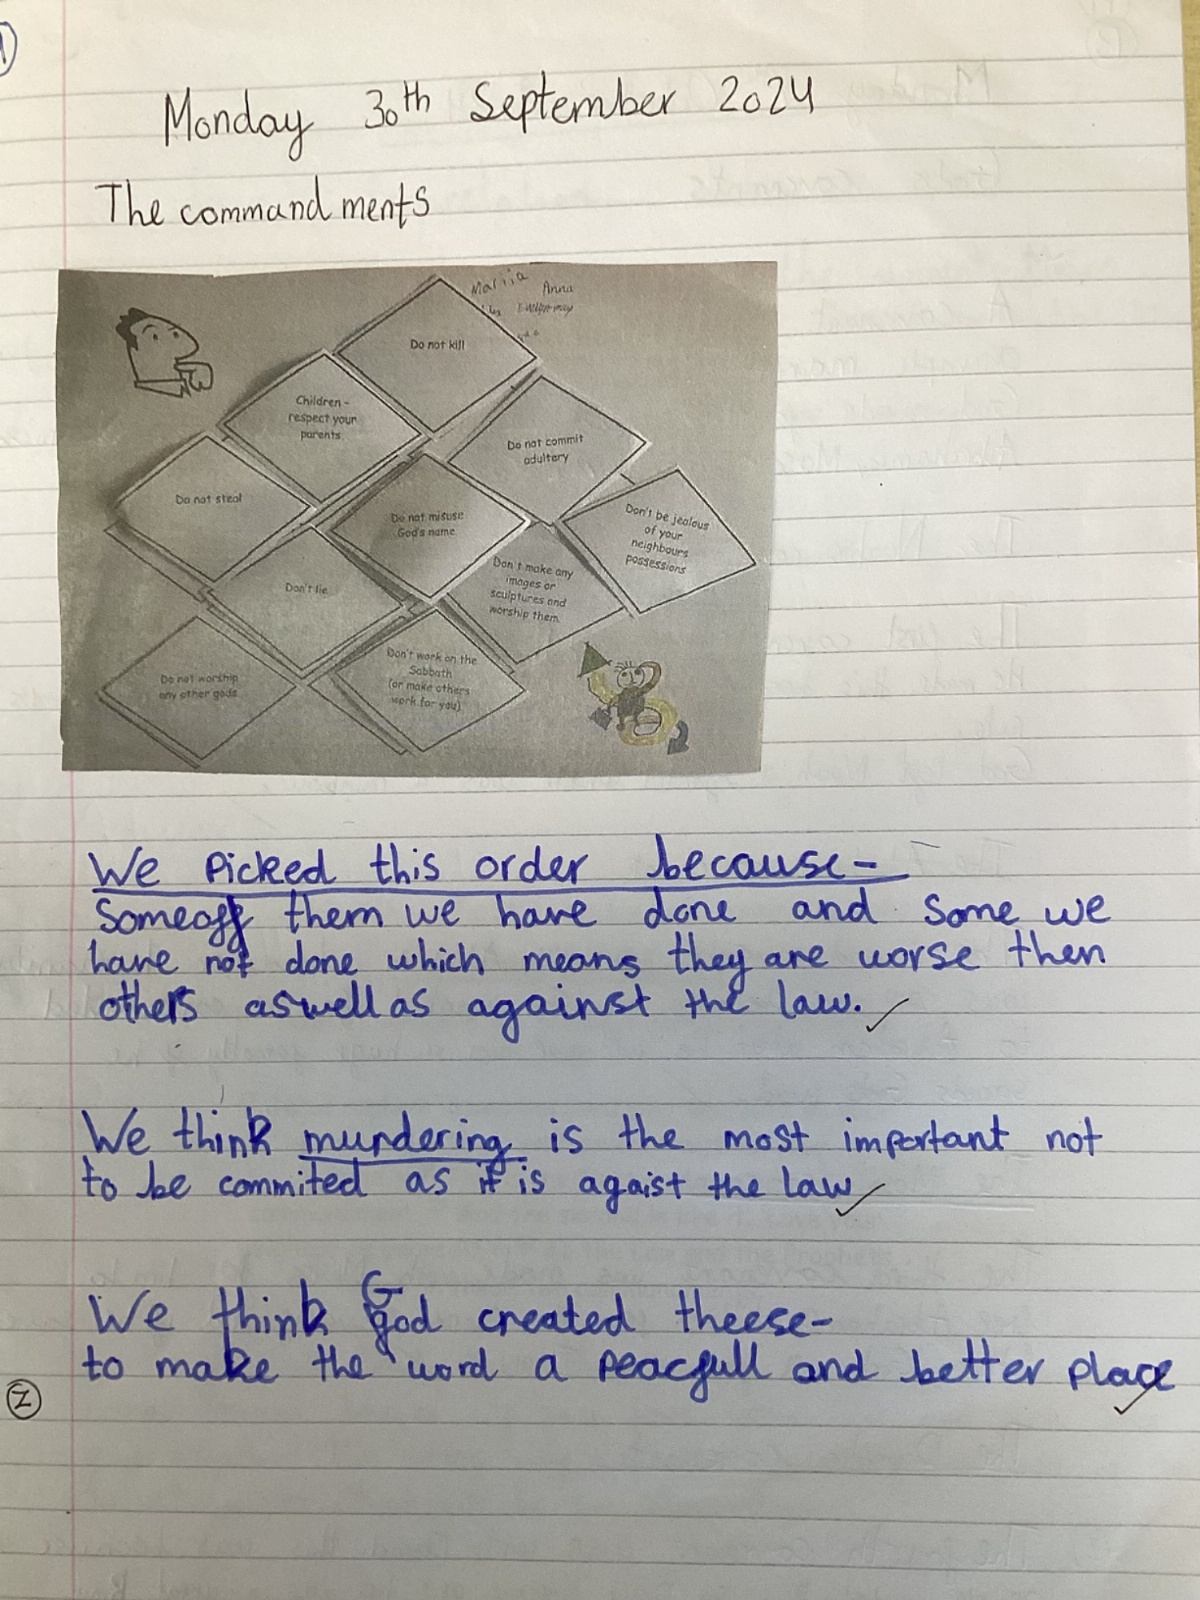 Monday 30th September 2024
The commandments
Mariia
Anna
Do not kill
Children -
respect your
parents
Do not commit
adultery
Do not steal
Do not misuse
God's name
Don't be jealous
of your
neighbours
possessions
Don't lie
Don't make any
images or
sculptures and
worship them
Do not worship
any other gods
Don't work on the
Sabbath
(or make others
work for you)
We Picked this order because-
Someoff them we have done and some we
have not done which means they are worse then
others aswell as against the law.
We think murdering is the most important not
to be commited as it is agaist the law
We think God created theese-
to make the word a peacfull and better place
2